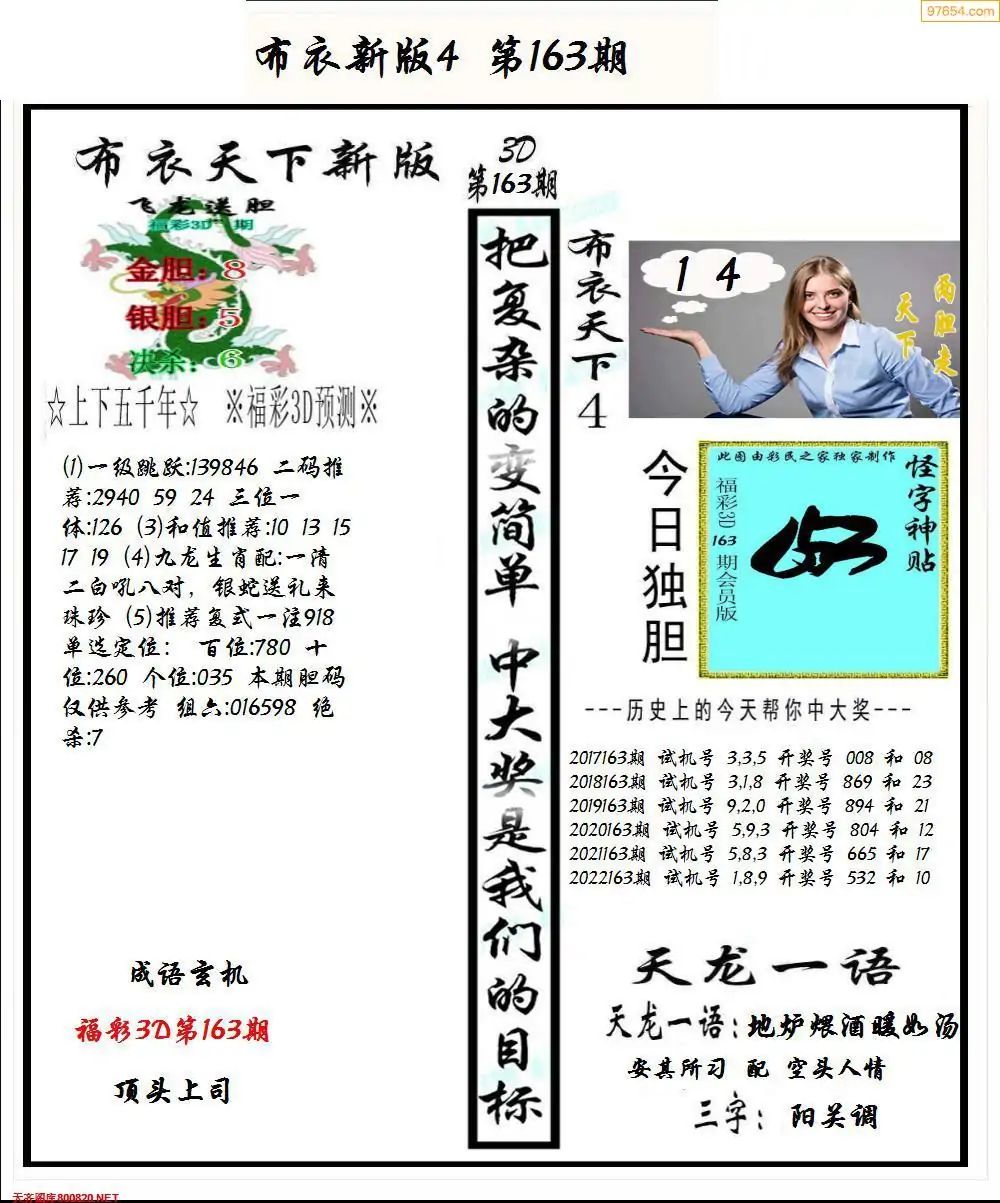 97654.com
布衣新版4 第163期
布衣天下新版
飞龙送胆
福彩3D 期
金胆：8
银胆：5
决杀：6
☆上下五千年☆ ※福彩3D预测※
(1)一级跳跃:139846 二码推
荐:2940 59 24 三位一
体:126 (3)和值推荐:10 13 15
17 19 (4)九龙生肖配:一清
二白吼八对，银蛇送礼来
珠珍 (5)推荐复式一注918
单选定位： 百位:780 十
位:260 个位:035 本期胆码
仅供参考 组六:016598 绝
杀:7
成语玄机
福彩3D第163期
顶头上司
3D
第163期
把复杂的变简单 中大奖是我们的目标
布衣天下4
14
两胆走
天下
今日独胆
此图由彩民之家独家制作
怪字神贴
福彩3D 163 期会员版
---历史上的今天帮你中大奖---
2017163期 试机号 3,3,5 开奖号 008 和 08
2018163期 试机号 3,1,8 开奖号 869 和 23
2019163期 试机号 9,2,0 开奖号 894 和 21
2020163期 试机号 5,9,3 开奖号 804 和 12
2021163期 试机号 5,8,3 开奖号 665 和 17
2022163期 试机号 1,8,9 开奖号 532 和 10
天龙一语
天龙一语：地炉煨酒暖如汤
安其所习 配 空头人情
三字： 阳关调
天齐图库800820.NET